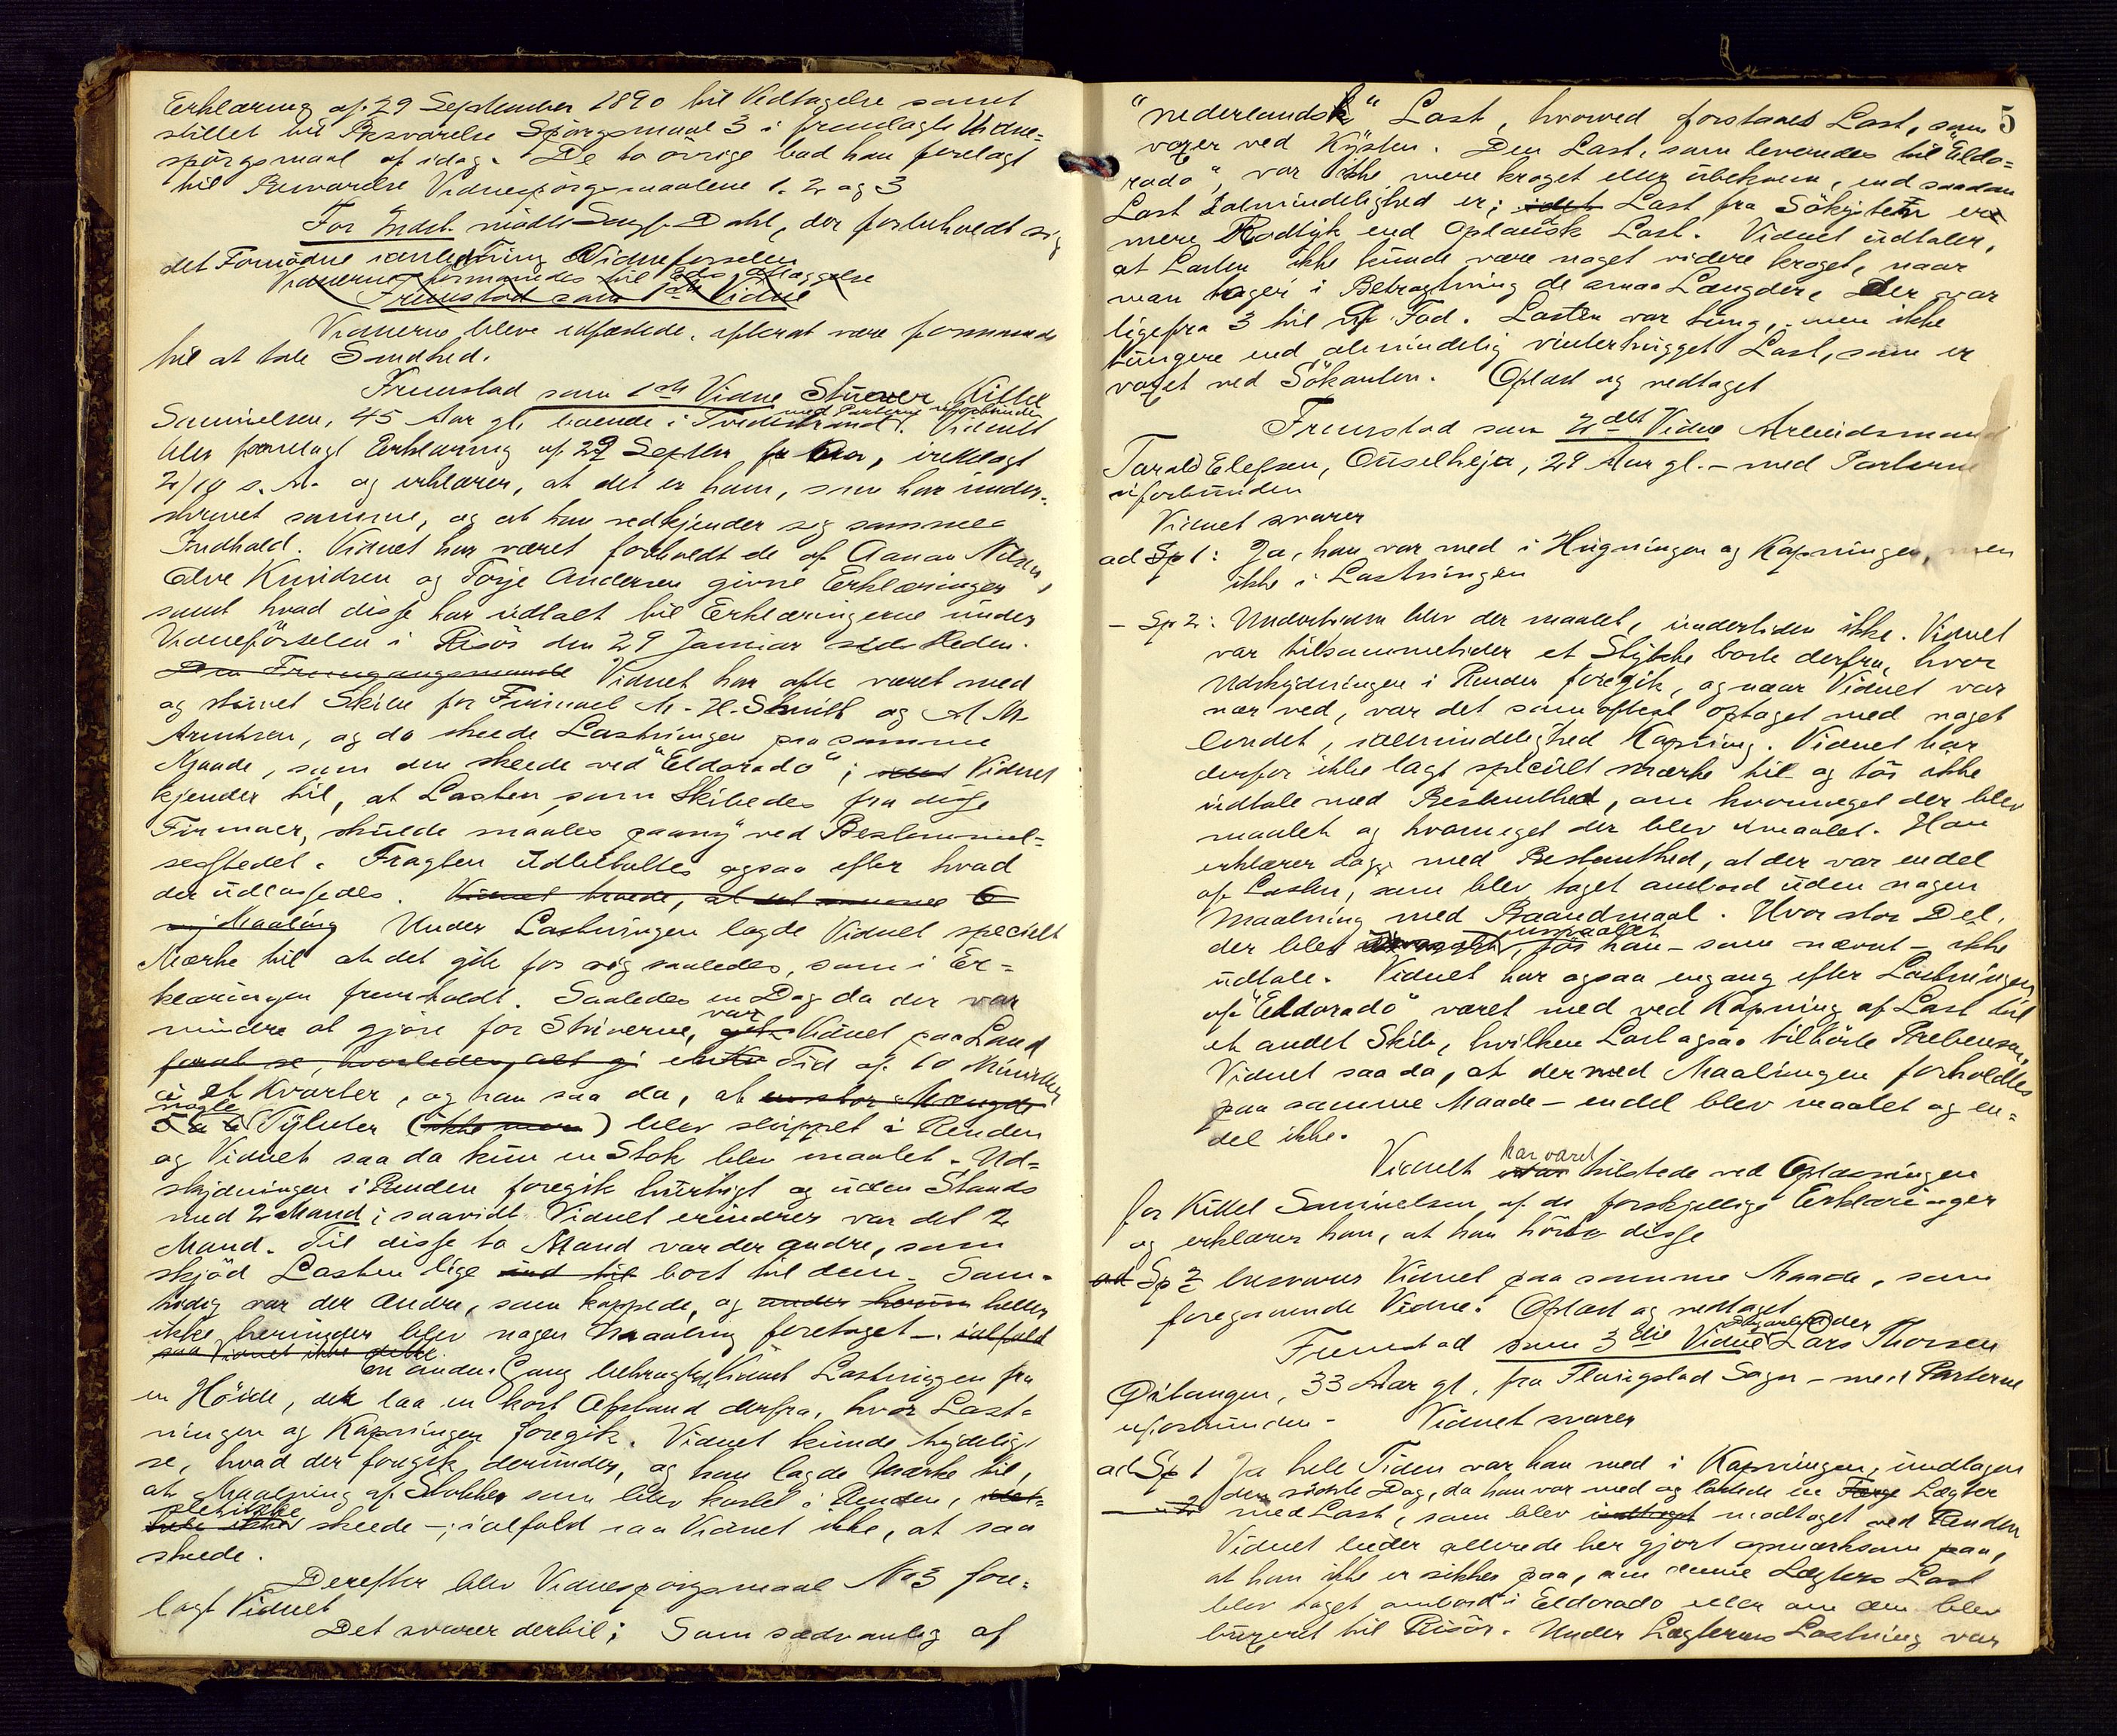 Erklæring af 29 September 1890 til Vedtagelse samt
stillet til Besvarelse Spörgsmaal 3 i fremlagte Vidne=
spörgsmaal af idag. De to övrige bad han forelagt
til Besvarelse Vidnespörgsmaalene 1. 2 og 3
For Indst. mödte Sagf. Dahl, der forbeholdt sig
det Fornödne ianledning Vidneførselen
Vidnerne formanedes til Eds aflæggelse
Fremstod som 1ste Vidne
Vidnerne bleve edfæstede, efterat være formanede
til at tale Sandhed.
Fremstod som 1ste Vidne Stuver Kittel
Samuelsen, 45 Aar gl, boende i Tvedestrand. med Parterne uforbunden Vidnet
blev forelagt Erklæring af 29 Septbr f. Aar, irettelagt
2/10 s. A. og erklærer, at det er ham, som har under=
skrevet samme, og at han vedkjender sig sammes
Indhold. Vidnet har været foreholdt de af Aanon Nilsen,
Alve Knudsen og Torje Andersen givne Erklæringer,
samt hvad disse har udtalt til Erklæringerne under
Vidneförselen i Risör den 29 Januar sidstleden.
Den Fremgangsmaade Vidnet har ofte været med
og stuvet Skibe for Firmaet M. H. Schmith og A M
Arntzen, og da skede Lastningen paa samme
Maade, som den skeede ved "Eldorado"; idet Vidnet
kjender til, at Lasten som Skibedes fra disse
Firmaer, skulde maales paany ved Bestemmel=
sesstedet. Fragten udbetaltes ogsaa efter hvad
der udlossedes. Vidnet troede, at det
ny Maaling Under Lastningen lagde Vidnet specielt
Mærke til at det gik for sig saaledes, som i Er=
klæringen fremholdt. Saaledes en Dag da der var
mindre at gjöre for Stuverne, gik var Vidnet paa Land
forat se, hvorledes alt gi en Tid af 10 Minutter
à et Kvarter, og han saa da, at en stor Mængde
5 à 6 nogle Tylvter (ikke mere) blev sluppet i Renden
og Vidnet saa da kun en Stok blev maalet. Ud=
skydningen i Renden foregik hurtigt og uden Stands
med 2 Mand; saavidt Vidnet erindrer var det 2
Mand. Til disse to Mand var der andre, som
skjöd Lasten lige ind til bort til dem. Sam=
tidig var der Andre, som kappede, og under herunder heller
ikke herunder blev nogen Maaling foretaget –. ialfald
saa Vidnet ikke dette.
En anden Gang betragtede Vidnet Lastningen fra
en Höide, der laa en kort Afstand derfra, hvor Last=
ningen og Kapningen foregik. Vidnet kunde tydeligt
se, hvad der foregik derunder, og han lagde Mærke til,
at Maalning af Stokker som blev kastet i Renden,
slet ikke skeede –; ialfald saa Vidnet ikke, at saa
skeede.
Derefter blev Vidnespörgsmaal No 3 fore=
lagt Vidnet
Det svarer dertil; Som sædvanlig af
5
"nederlandsk" Last, hvorved forstaaes Last, som
voxer ved Kysten. Den Last, som leveredes til "Eldo=
rado", var ikke mere kroget eller ubekvem, end saadan
Last ialmindelighed er; idet Last fra Sökysten er
mere Rodtyk end oplandsk Last. Vidnet udtaler,
at Lasten ikke kunde være noget videre kroget, naar
man tager i Betragtning de smaa Længder, Der var
ligefra 3 til Fod. Lasten var tung, men ikke
tungere end almindelig vinterhugget Last, som er
voxet ved Sökanten. Oplæst og vedtaget
Fremstod som 2det Vidne Arbeidsmand
Tarald Elefsen, Ouselheja, 29 Aar gl. – med Parterne
uforbunden
Vidnet svarer
ad Sp 1: Ja, han var med i Hugningen og Kapningen, men
ikke i Lastningen
– Sp 2: Undertiden blev der maalet, undertiden ikke. Vidnet
var tilsammetider et Stykke borte derfra, hvor
Udskydningen i Renden foregik, og naar Vidnet var
nær ved, var det som oftest optaget med noget
Andet, ialmindelighed Kapning. Vidnet har
derfor ikke lagt specielt Mærke til og tör ikke
udtale med Bestemthed, om hvormeget der blev
maalet og hvormeget der blev umaalet. Han
erklærer dog med Bestemthed, at der var endel
af Lasten, som blev taget ombord uden nogen
Maalning med Baandmaal. Hvor stor Del,
der blev umaalet, tör han – som nævnt – ikke
udtale. Vidnet har ogsaa engang efter Lastningen
af "Eldorado" været med ved Kapning af Last til
et andet Skib, hvilken Last ogsaa tilhörte Prebensen,
Vidnet saa da, at der ved Maalingen forholdtes
paa samme Maade – endel blev maalet og en=
del ikke.
Vidnet var har været tilstede ved Oplæsningen
for Kittel Samuelsen af de forskjellige Erklæringer
og erklærer han, at han hörte disse
ad Sp 3 besvarer Vidnet paa samme Maade, som
foregaaende Vidne. Oplæst og vedtaget
Fremstod som 3die Vidne Lars Thorsen
Östangen, 33 Aar gl, fra Flosta Sogn – med Parterne
uforbunden – Vidnet svarer
ad Sp 1 Ja hele Tiden var han med i Kapningen, undtagen
– 2 den sidste Dag, da han var med og lastede en Færge Lægter
med Last, som blev indtaget modtaget ved Renden
Vidnet beder allerede her gjort opmærksom paa,
at han ikke er sikker paa, om denne Lægters Last
blev taget ombord i Eldorado eller om den blev
buxeret til Risör. Under Lægterens Lastning var